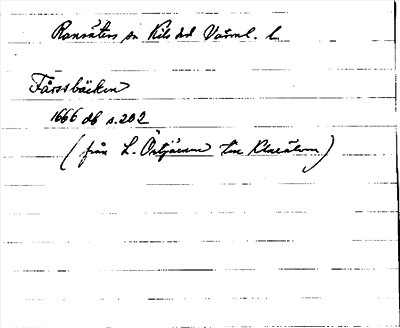 Ransäters sn Kils hd Värml. l.
Fårssbäcken
1666 db s. 202
(från L. Östjärnen till Klarälven)